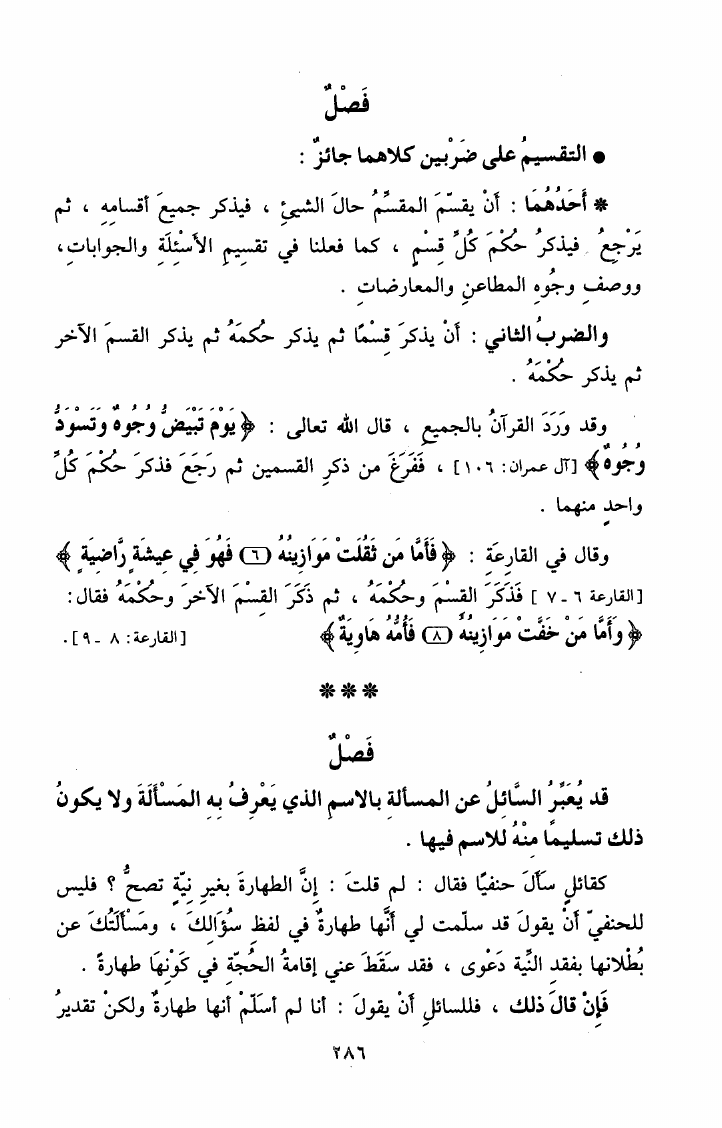 فَصْلٌ
● التقسيمُ على ضَرْبين كلاهما جائزٌ :
* أَحَدُهُمَا : أَنْ يقسّمَ المقسِّمُ حالَ الشيئِ ، فيذكر جميعَ أقسامهِ ، ثم
يَرْجِعُ فيذكرُ حُكْمَ كُلِّ قِسْمٍ ، كما فعلنا في تقسِيمِ الأَسْئِلَةِ والجواباتِ،
ووصفِ وجُوهِ المطاعنِ والمعارضاتِ .
والضربُ الثاني : أَنْ يذكرَ قِسْمًا ثم يذكر حُكمَهُ ثم يذكر القسمَ الآخر
ثم يذكر حُكْمَهُ .
وقد وَرَدَ القرآنُ بالجميعِ ، قال الله تعالى : ﴿ يَوْمَ تَبْيَضُّ وُجُوهٌ وَتَسْوَدُّ
وُجُوهٌ﴾ [آل عمران: ١٠٦] ، فَفَرَغَ من ذكرِ القسمين ثم رَجَعَ فذكرَ حُكْمَ كُلِّ
واحدٍ منهما .
وقال في القارِعَةِ : ﴿ فَأَمَّا مَن ثَقُلَتْ مَوَازِينُهُ (٦) فَهُوَ فِي عِيشَةٍ رَّاضِيَةٍ ﴾
[القارعة ٦ ـ ٧ ] فَذَكَرَ القِسْمَ وحُكْمَهُ ، ثم ذَكَرَ القِسْمَ الآخرَ وحُكْمَهُ فقال:
﴿ وَأَمَّا مَنْ خَفَّتْ مَوَازِينُهُ (٨) فَأُمُّهُ هَاوِيَةٌ ﴾ [القارعة: ٨ ـ ٩].
***
فَصْلٌ
قد يُعَبِّرُ السَّائلُ عن المسألةِ بالاسمِ الذي يَعْرِفُ بِهِ المَسْأَلَةَ ولا يكونُ
ذلك تسليمًا مِنْهُ للاسم فيها .
كقائلٍ سَأَلَ حنفيًا فقال : لم قلتَ : إِنَّ الطهارةَ بغيرِ نيّةٍ تصحُّ ؟ فليس
للحنفيّ أَنْ يقولَ قد سلّمت لي أَنَّها طهارةٌ في لفظِ سُؤَالِكَ ، ومَسْأَلَتُكَ عن
بُطْلانها بفقد النِّية دَعْوى ، فقد سَقَطَ عني إقامةُ الحُجّةِ في كَوْنِهَا طهارةً .
فَإِنْ قالَ ذلك ، فللسائلِ أَنْ يقولَ : أنا لم أسَلِّمْ أنها طهارةٌ ولكنْ تقديرُ
٢٨٦